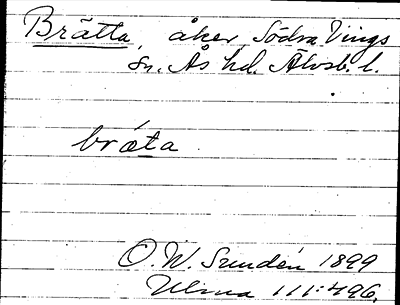 Brätta, åker, Södra Vings
sn. Ås hd. Älvsb. l.
bræta.
O. W. Sundén 1899
Ulma 111:496.